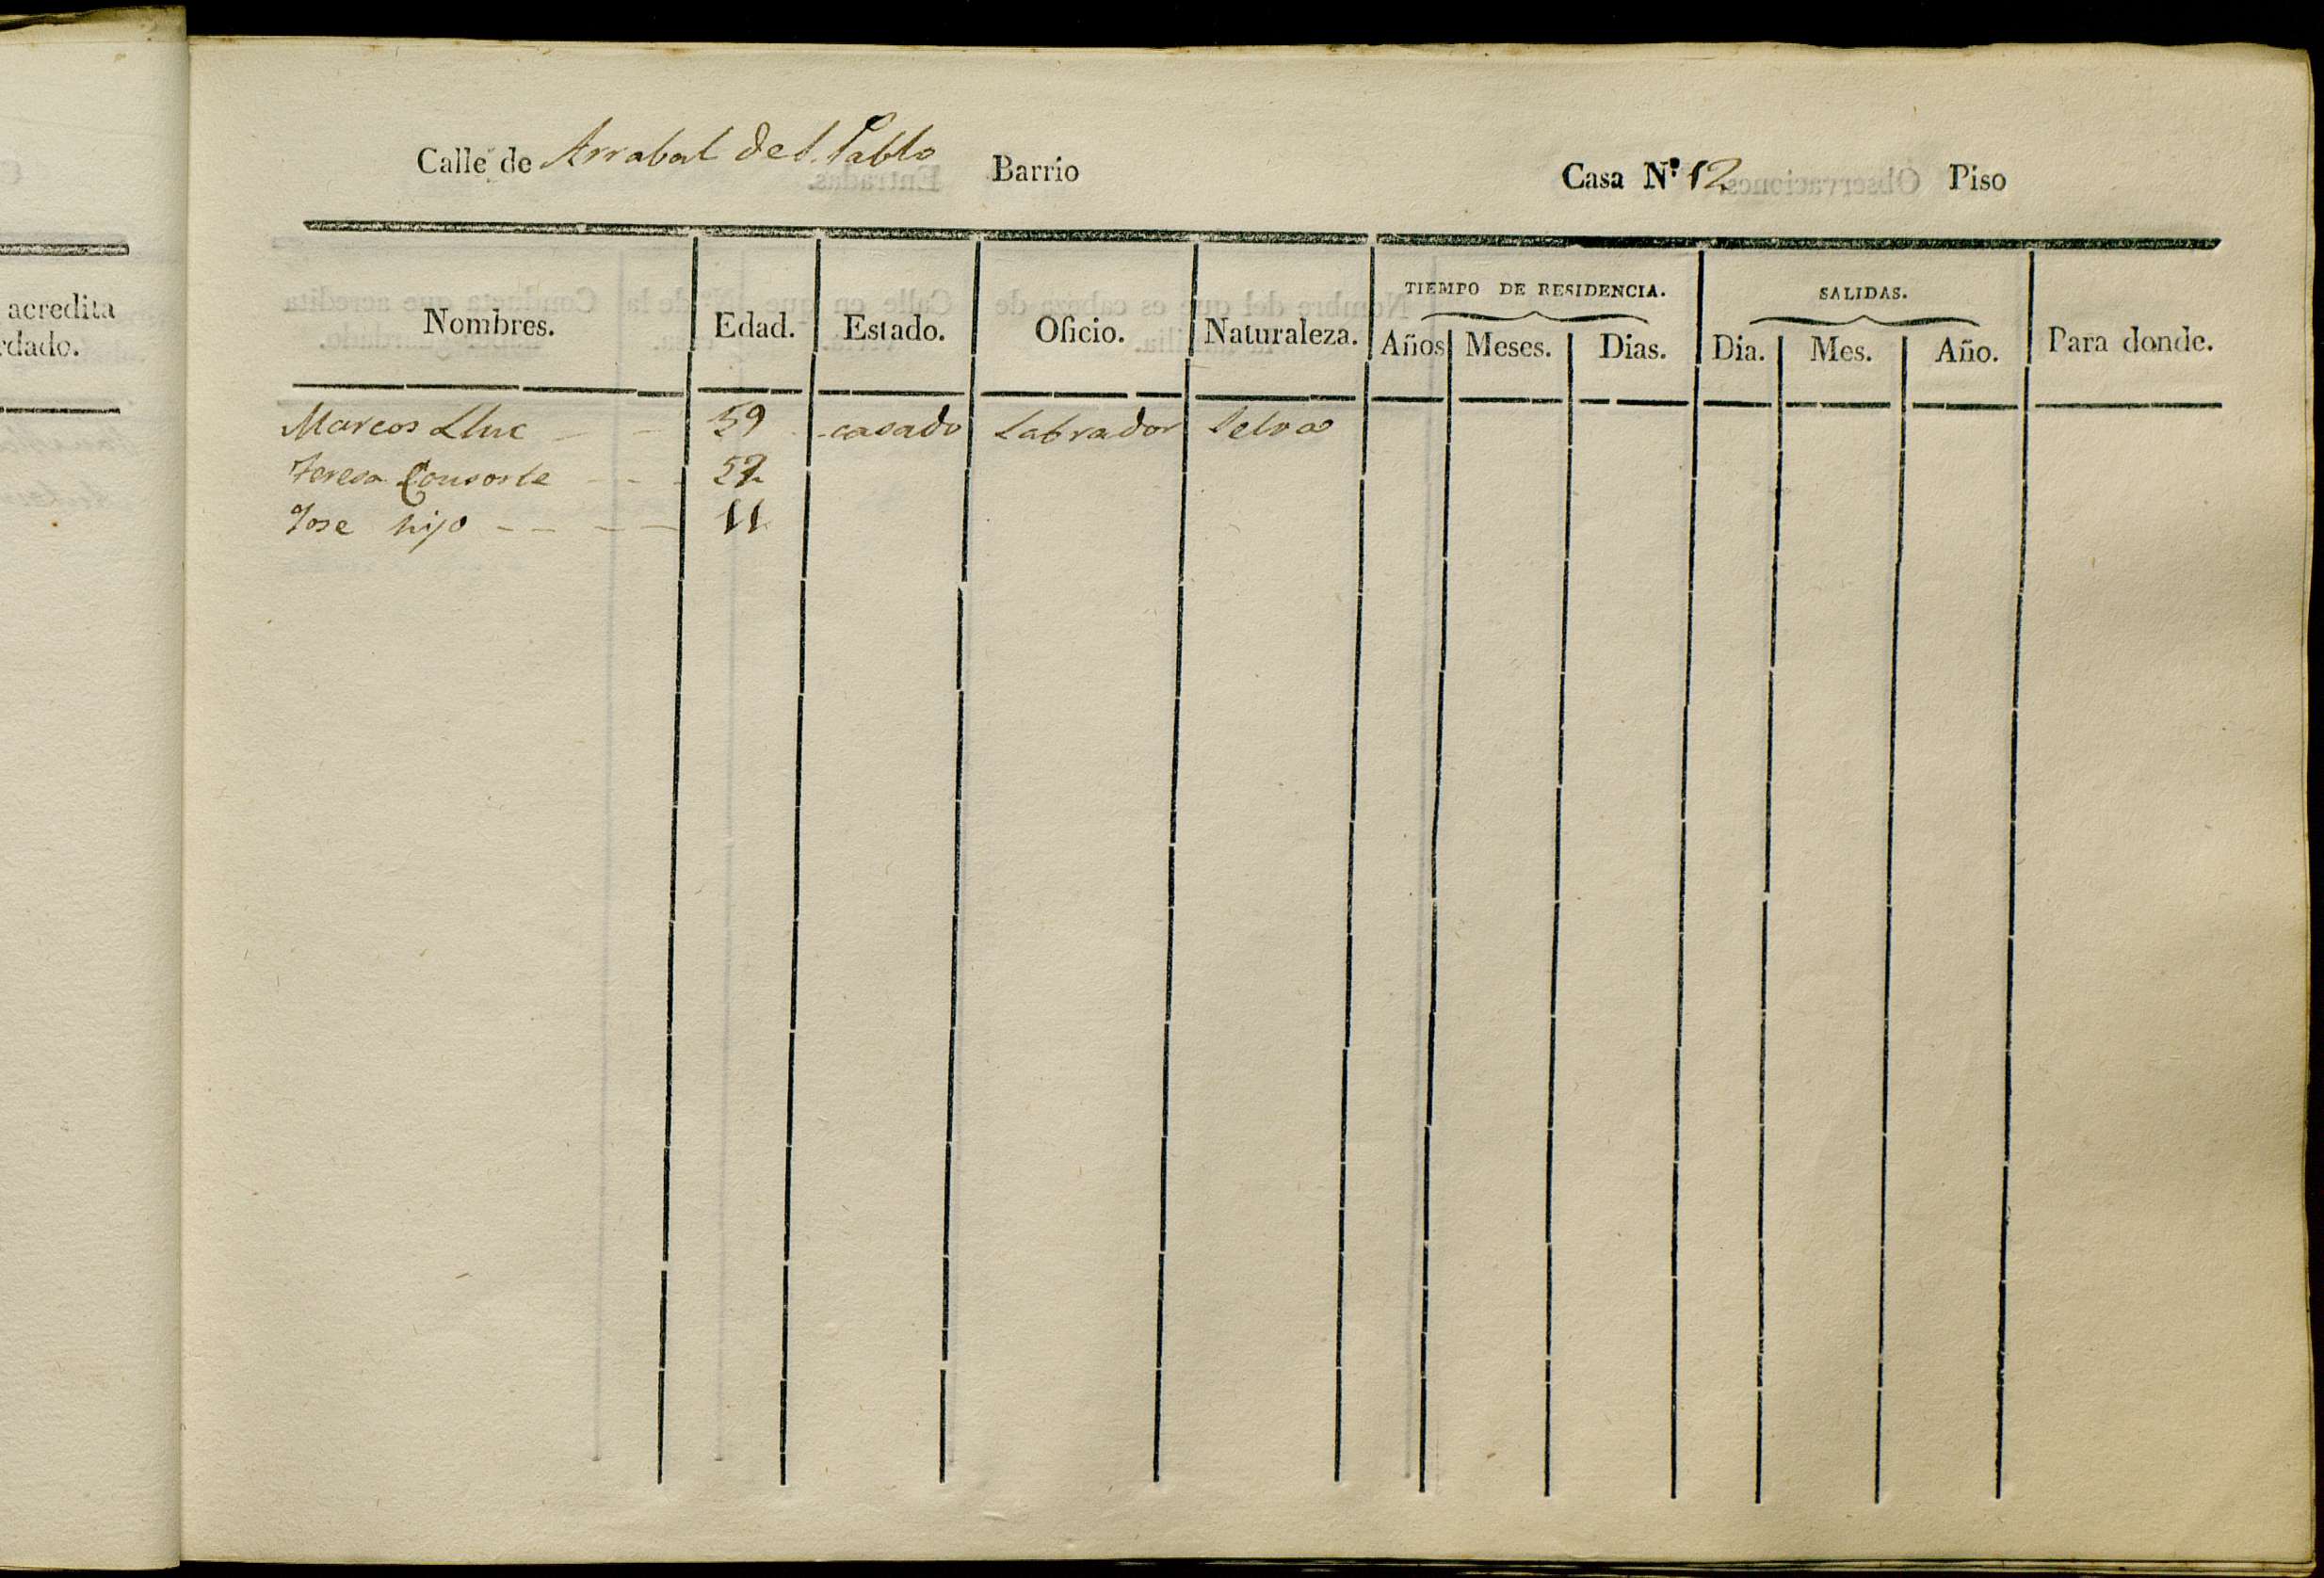 Calle de Arrabal de S. Pablo Barrio Casa N.º 12 Piso
acredita
rdado.
TIEMPO DE RESIDENCIA. SALIDAS.
Nombres. Edad. Estado. Oficio. Naturaleza. Años Meses. Dias. Dia. Mes. Año. Para donde.
Marcos Lluc 59 casado Labrador Selva
Teresa Consorte
Jose hijo 11